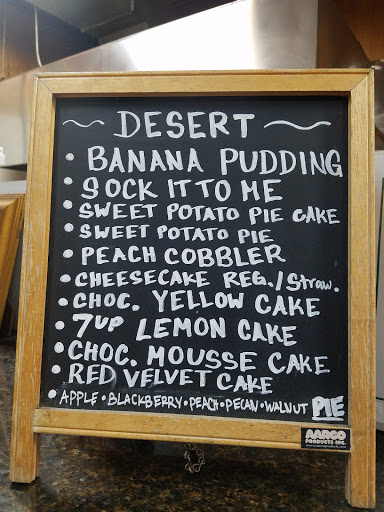 ~ DESERT ~
• BANANA PUDDING
• SOCK IT TO ME
• SWEET POTATO PIE CAKE
• SWEET POTATO PIE
• PEACH COBBLER
• CHEESECAKE REG./Straw.
• CHOC. YELLOW CAKE
• 7UP LEMON CAKE
• CHOC. MOUSSE CAKE
• RED VELVET CAKE
• APPLE • BLACKBERRY • PEACH • PECAN • WALNUT PIE
AARCO
PRODUCTS INC.